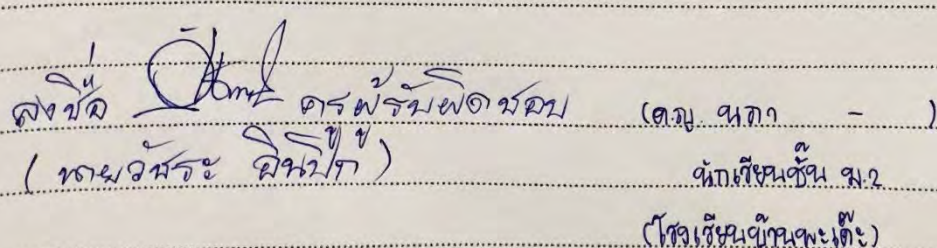 ลงชื่อ ครูผู้รับผิดชอบ
(นายวัชระ อินปัก)
(ดญ. นภา - )
นักเรียนชั้น ม.2
(โรงเรียนบ้านพะเด๊ะ)